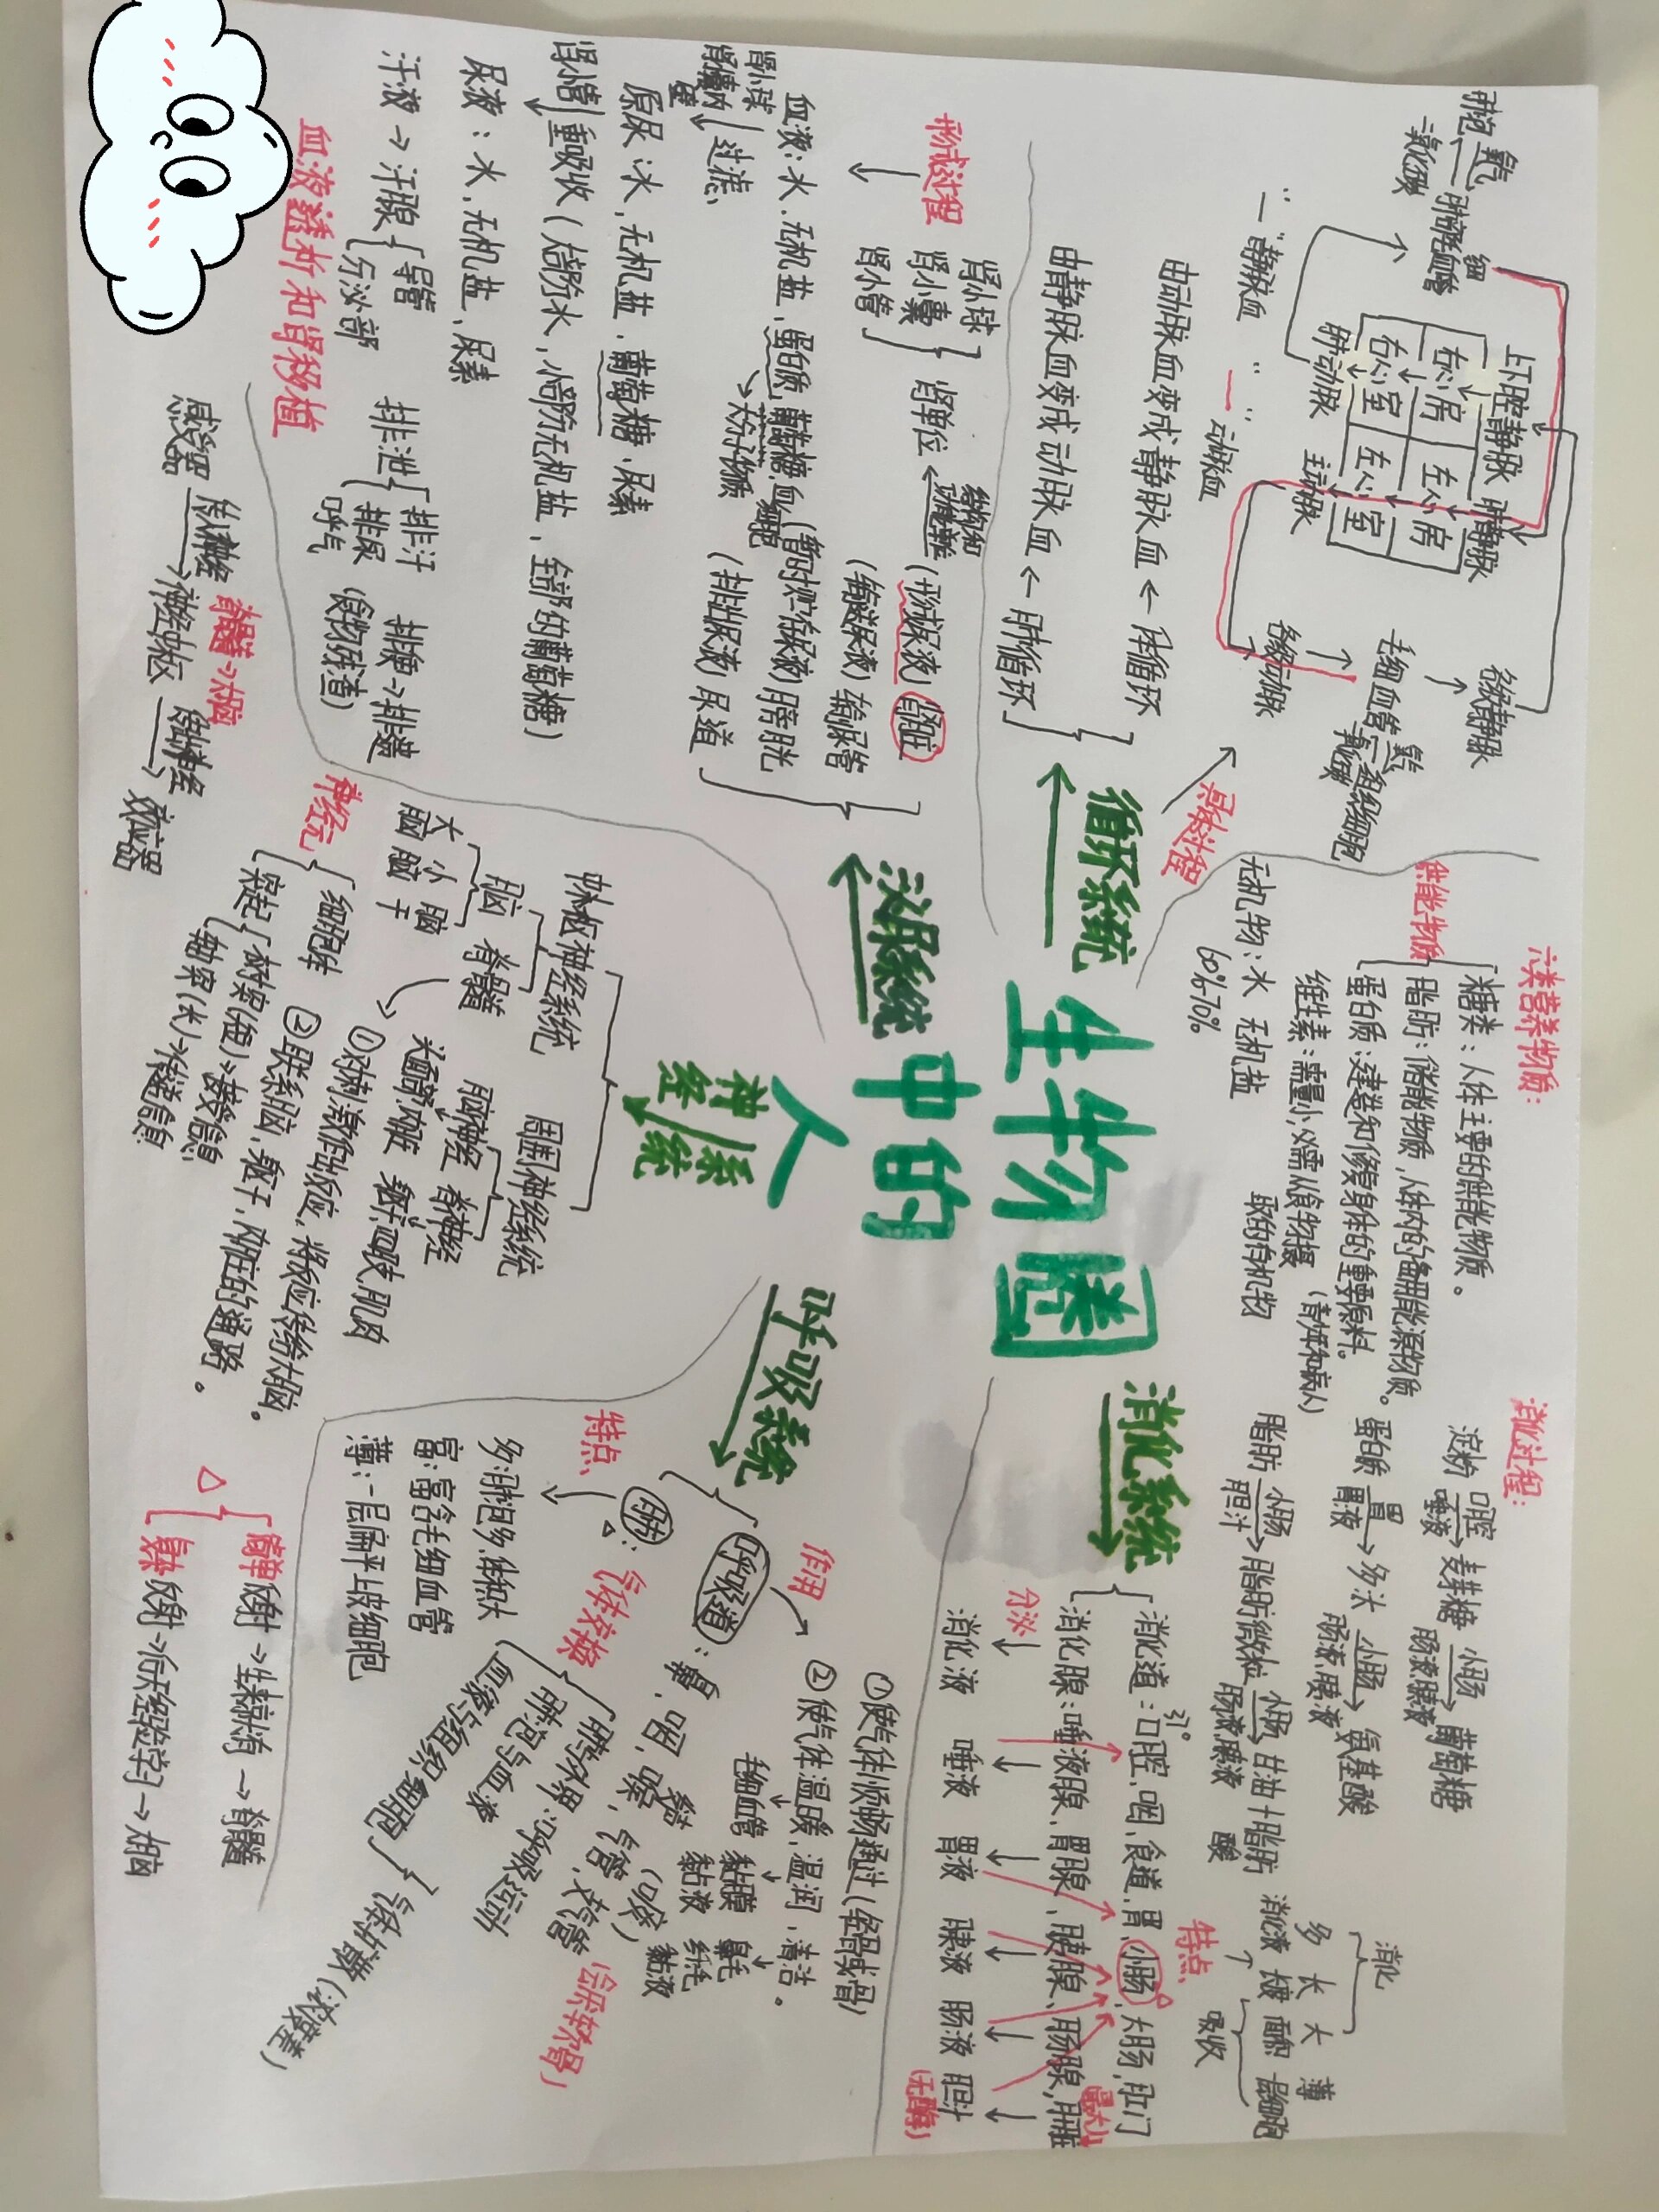 生物圈
中的
人
循环系统
肺泡
氧气
二氧化碳
肺部毛细血管
上下腔静脉
肺静脉
右心房
左心房
右心室
左心室
肺动脉
主动脉
各级静脉
毛细血管
氧气
二氧化碳
组织细胞
各级动脉
"—"静脉血
"—"动脉血
由动脉血变成静脉血 ← 体循环
由静脉血变成动脉血 ← 肺循环
泌尿系统
形成过程
肾小球
肾小囊
肾小管
肾单位
结构和
功能单位
(形成尿液) 肾脏
(输送尿液) 输尿管
(暂时贮存尿液) 膀胱
(排出尿液) 尿道
血液:水、无机盐、蛋白质、葡萄糖、血细胞
大分子物质
肾小球
肾小囊内壁
过滤
原尿:水、无机盐、葡萄糖、尿素
肾小管 重吸收(大部分水,小部分无机盐,全部的葡萄糖)
尿液:水、无机盐、尿素
汗液→汗腺
导管
分泌部
排泄
排汗
排尿
呼气
排便→排粪
(食物残渣)
血液透析和肾移植
六类营养物质:
供能物质
糖类:人体主要的供能物质。
脂肪:储能物质,人体内的备用能源物质。
蛋白质:建造和修复身体的重要原料。
(青少年和病人)
维生素:需量小,必需从食物摄
取的有机物
无机物:水 无机盐
60%70%
消化过程:
淀粉 口腔 唾液→麦芽糖 小肠 肠液胰液→葡萄糖
蛋白质 胃 胃液→多肽 小肠 肠液胰液→氨基酸
脂肪 小肠 胆汁→脂肪微粒 小肠 肠液胰液→甘油+脂肪
酸
消化系统
消化道:口腔、咽、食道、胃、小肠、大肠、肛门
消化腺:唾液腺、胃腺、胰腺、肠腺、肝脏
最大
分泌
消化液 唾液 胃液 胰液 肠液 胆汁
(无酶)
特点
消化
多 长 大 薄
消化液 皱襞 面积
吸收
神经系统
中枢神经系统
周围神经系统
脑 脊髓
大脑 小脑 脑干
脑神经 脊神经
头面部,内脏 躯干,四肢,肌肉
①对刺激作出反应,将反应传给大脑
②联系脑,躯干,内脏的通路。
神经元
细胞体
突起
树突(短)→接受信息
轴突(长)→传递信息
感受器 传入神经→神经中枢 传出神经→效应器
脊髓→大脑
△
简单反射→生来就有→脊髓
复杂反射→后天经验学习→大脑
呼吸系统
作用
①使气体顺畅通过(软骨或骨)
②使气体温暖,湿润,清洁。
毛细血管 黏膜 鼻毛
黏液 纤毛
黏液
呼吸道:鼻,咽,喉,气管,支气管
肺:气体交换
特点
多:肺泡多,体积大
富:富含毛细血管
薄:一层扁平上皮细胞
肺与外界:呼吸运动
肺泡与血液
血液与组织细胞
气体扩散(浓度差)